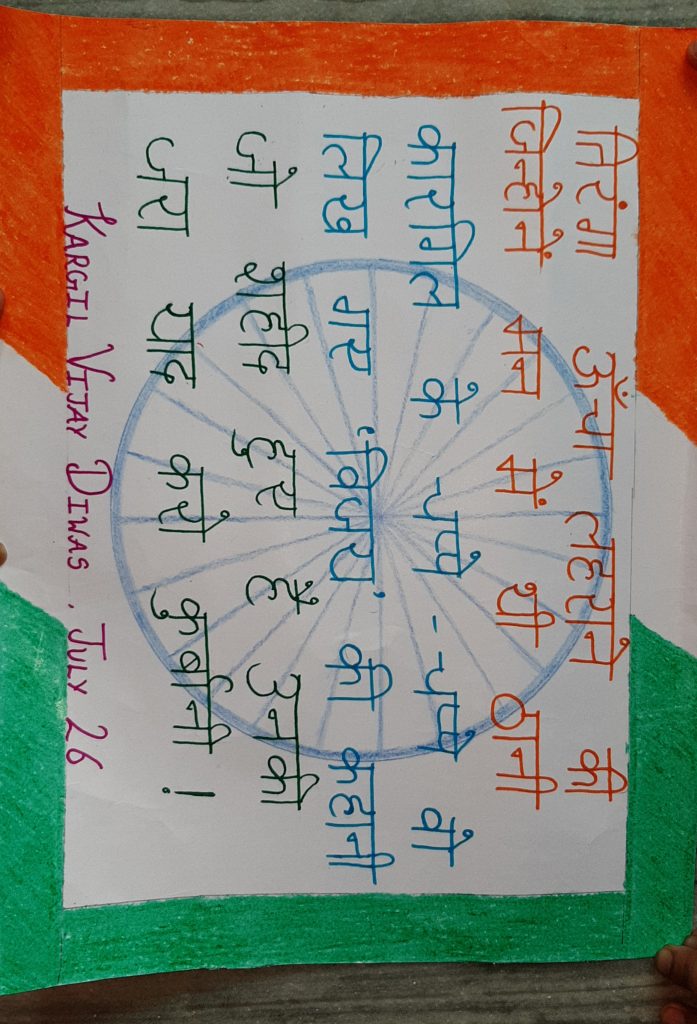 तिरंगा ऊँचा लहराने की
जिन्होनें मन में थी ठानी
कारगिल के चप्पे-चप्पे वो
लिख गए 'विजय' की कहानी
जो शहीद हुए है उनकी
जरा याद करो कुर्बानी!
KARGIL VIJAY DIWAS, JULY 26